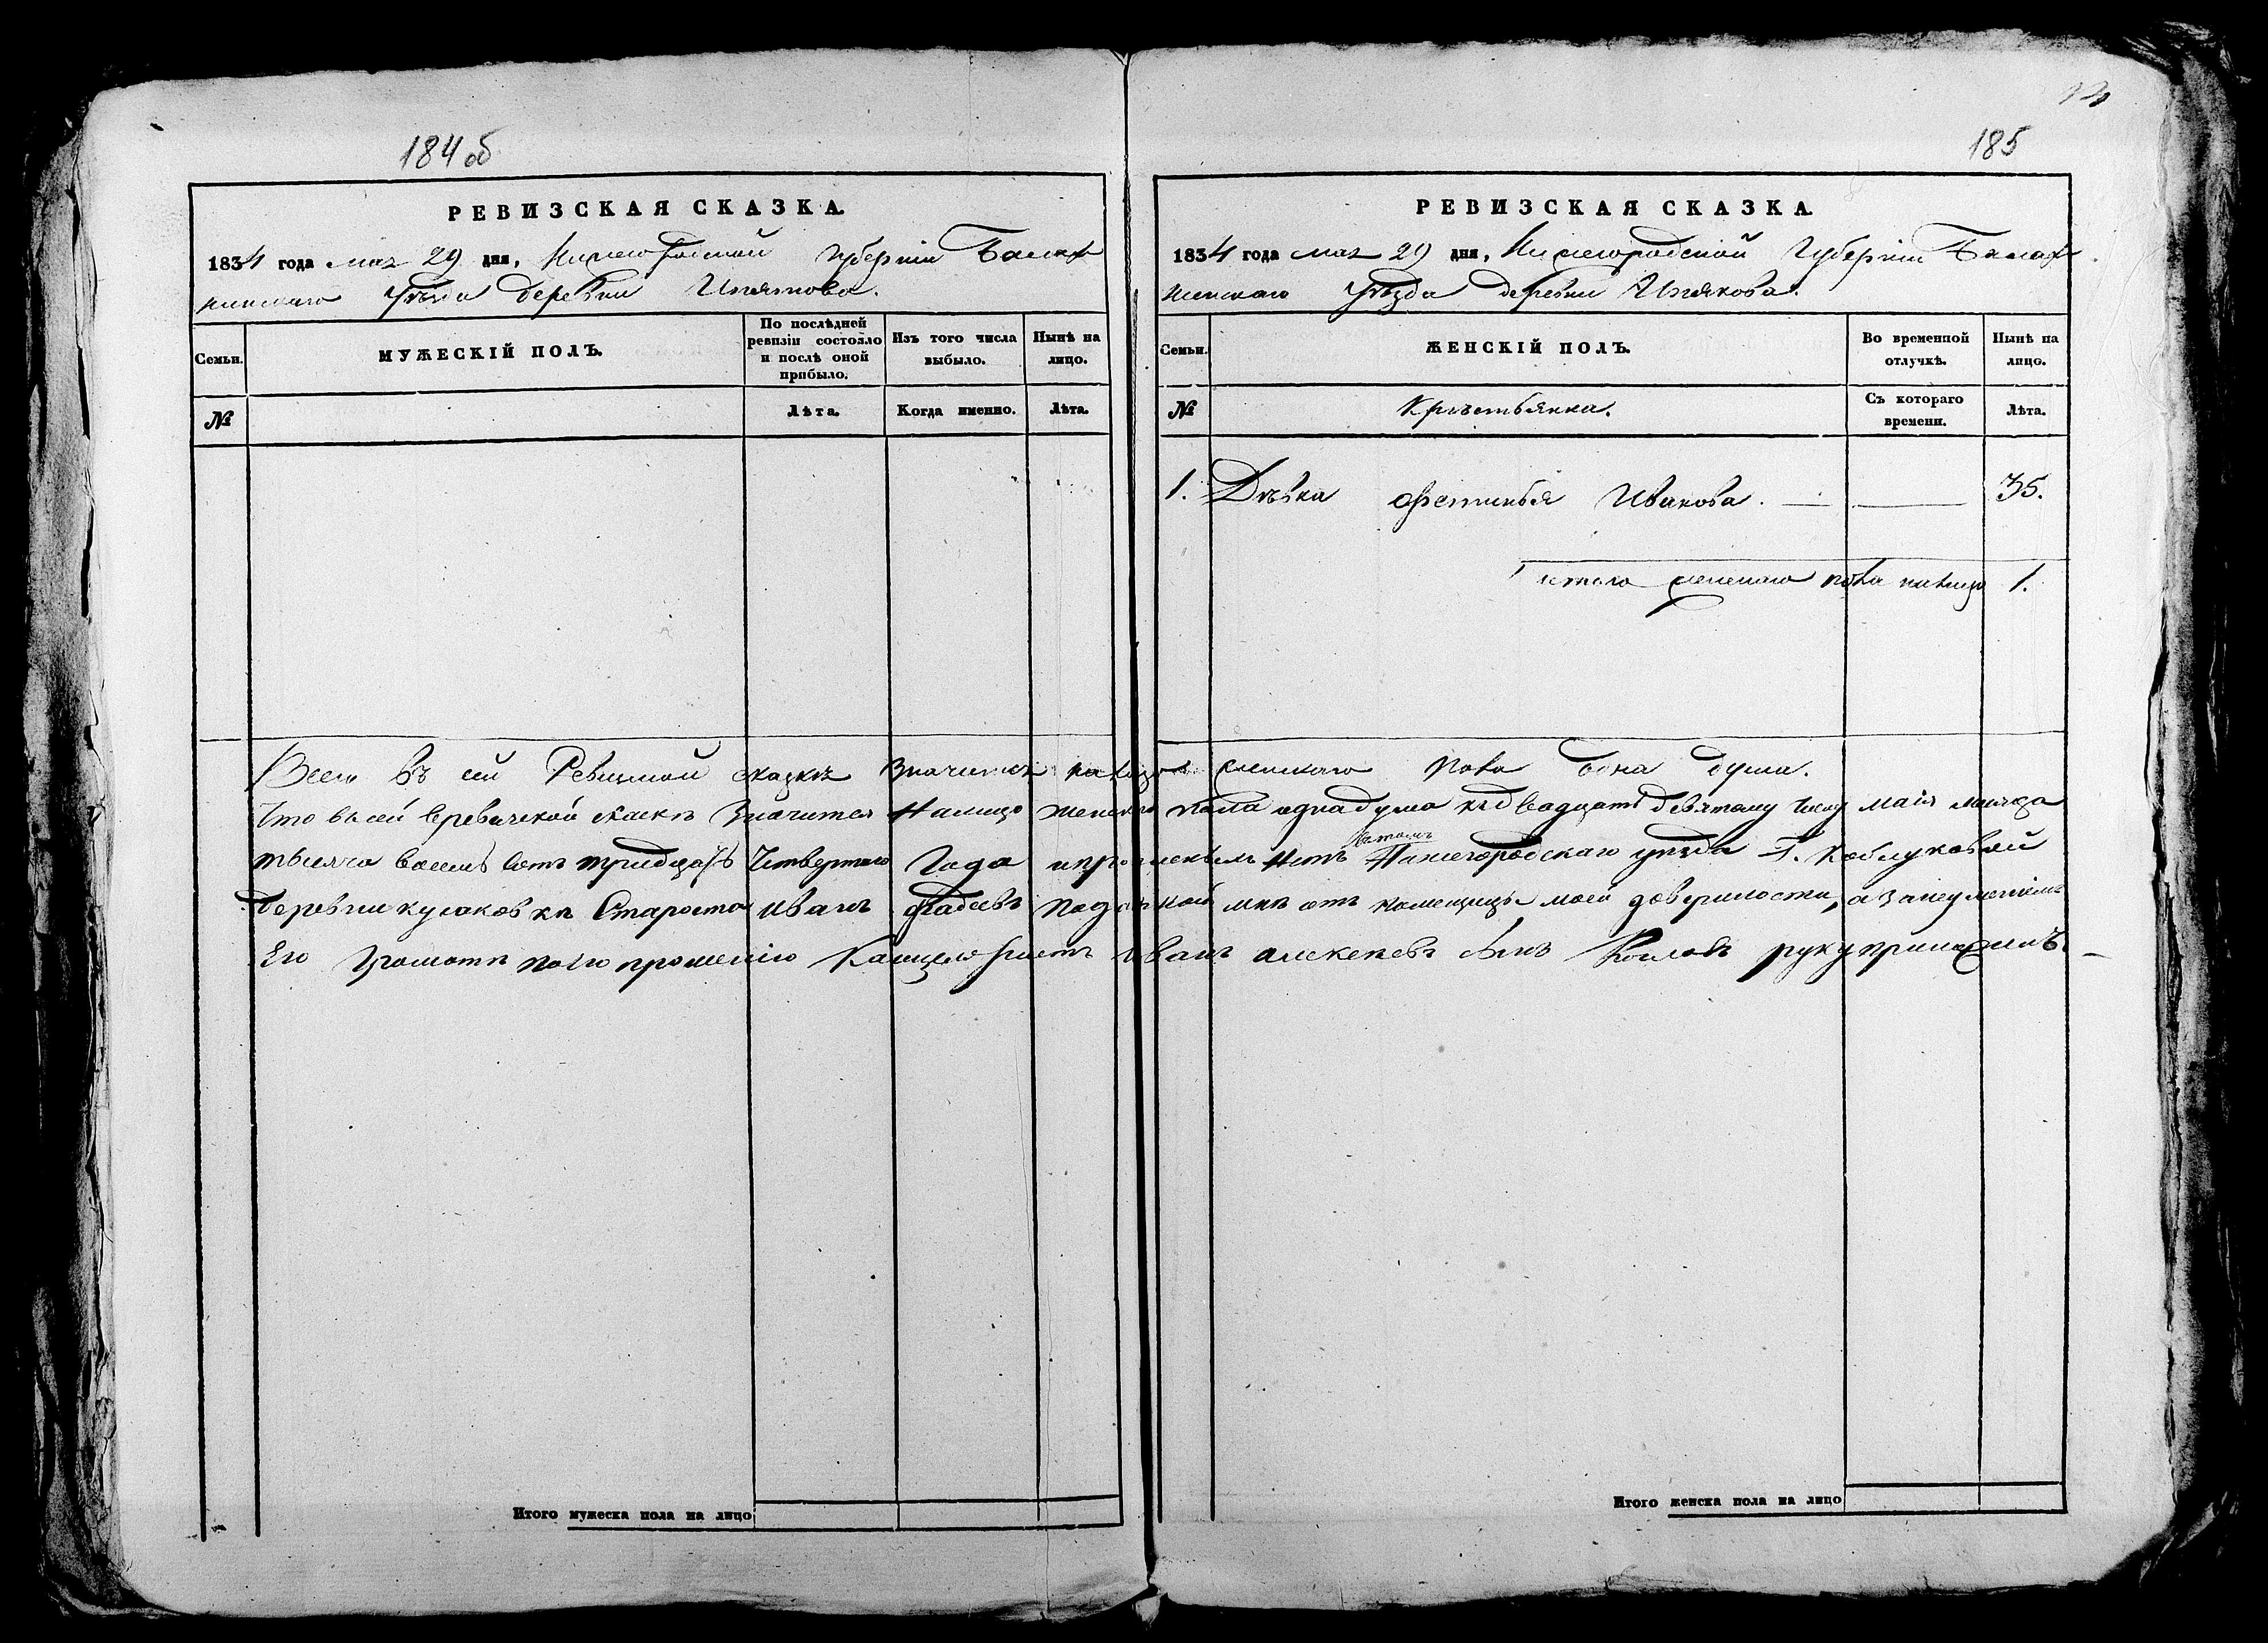 184 об
РЕВИЗСКАЯ СКАЗКА.
1834 года мая 29 дня, Нижегородской Губернiи Балах
нинскаго Уѣзда деревни
Семьи.
МУЖЕСКIЙ ПОЛЪ.
По послѣдней ревизiи состояло и послѣ оной прибыло.
Изъ того числа выбыло.
Нынѣ на лицо.
№
Лѣта.
Когда именно.
Лѣта.
185
РЕВИЗСКАЯ СКАЗКА.
1834 года мая 29 дня, Нижегородской Губернiи Балах
нинскаго Уѣзда деревни
Семьи.
ЖЕНСКIЙ ПОЛЪ.
Во временной отлучкѣ.
Нынѣ на лицо.
№
Крѣстьянка.
Съ котораго времени.
Лѣта.
1. Дѣвка Фетинья Иванова. 35.
итого женскаго пола налицо 1.
Всего въ сей Ревизкой сказкѣ значится налицо женскаго пола одна душа.
Что в сей вревизской скаскѣ значится налицо женскаго пола одна душа къ двадцать девятому числу маiя месяца
тысяча восемь сотъ тридцать четвертаго Года нѣтъ вътомъ Нижегородскаго уѣзда Г. Коблуковой
деревни кусаковки Староста иванъ фадеевъ по мнѣ отъ помещицы моей доверености, а занеумениемъ
Его Грамотѣ поего прошенiю Канцеляристъ иванъ алексеевъ сынъ руку приложилъ.
Итого мужеска пола на лицо
Итого женска пола на лицо